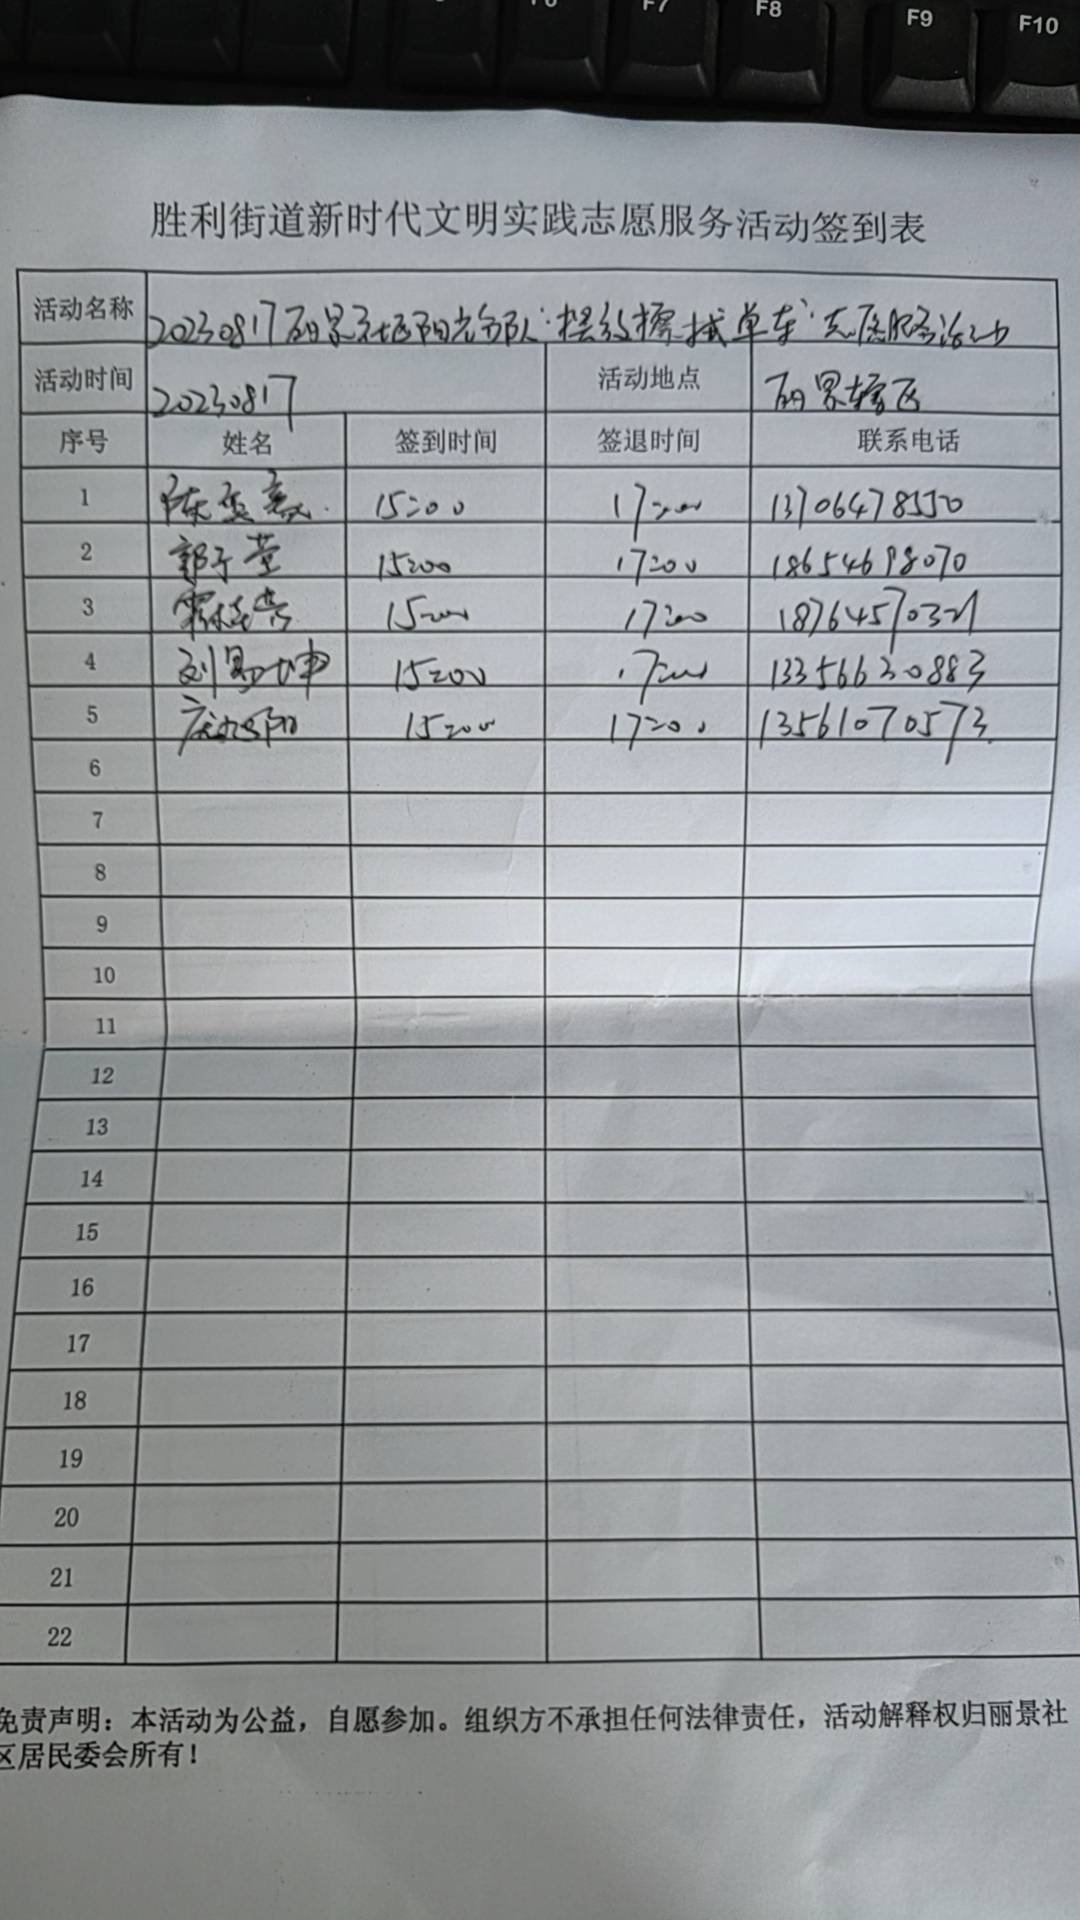 F6 F7 F8 F9 F10
胜利街道新时代文明实践志愿服务活动签到表
活动名称 20230817丽景社区阳光分队“摆放擦拭单车”志愿服务活动
活动时间 20230817 活动地点 丽景辖区
序号 姓名 签到时间 签退时间 联系电话
1 陈 15:00 17:00 13706478550
2 郭子莹 15:00 17:00 18654698070
3 15:00 17:00 18764570321
4 刘昱坤 15:00 17:00 13356630883
5 15:00 17:00 13561070573
6
7
8
9
10
11
12
13
14
15
16
17
18
19
20
21
22
免责声明：本活动为公益，自愿参加。组织方不承担任何法律责任，活动解释权归丽景社
区居民委会所有！